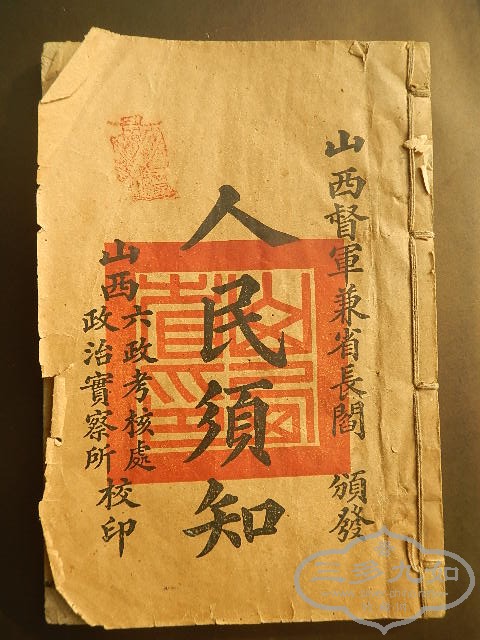 山西督軍兼省長閻 頒發
人民須知
山西六政考核處
政治實察所
校印
三多九如